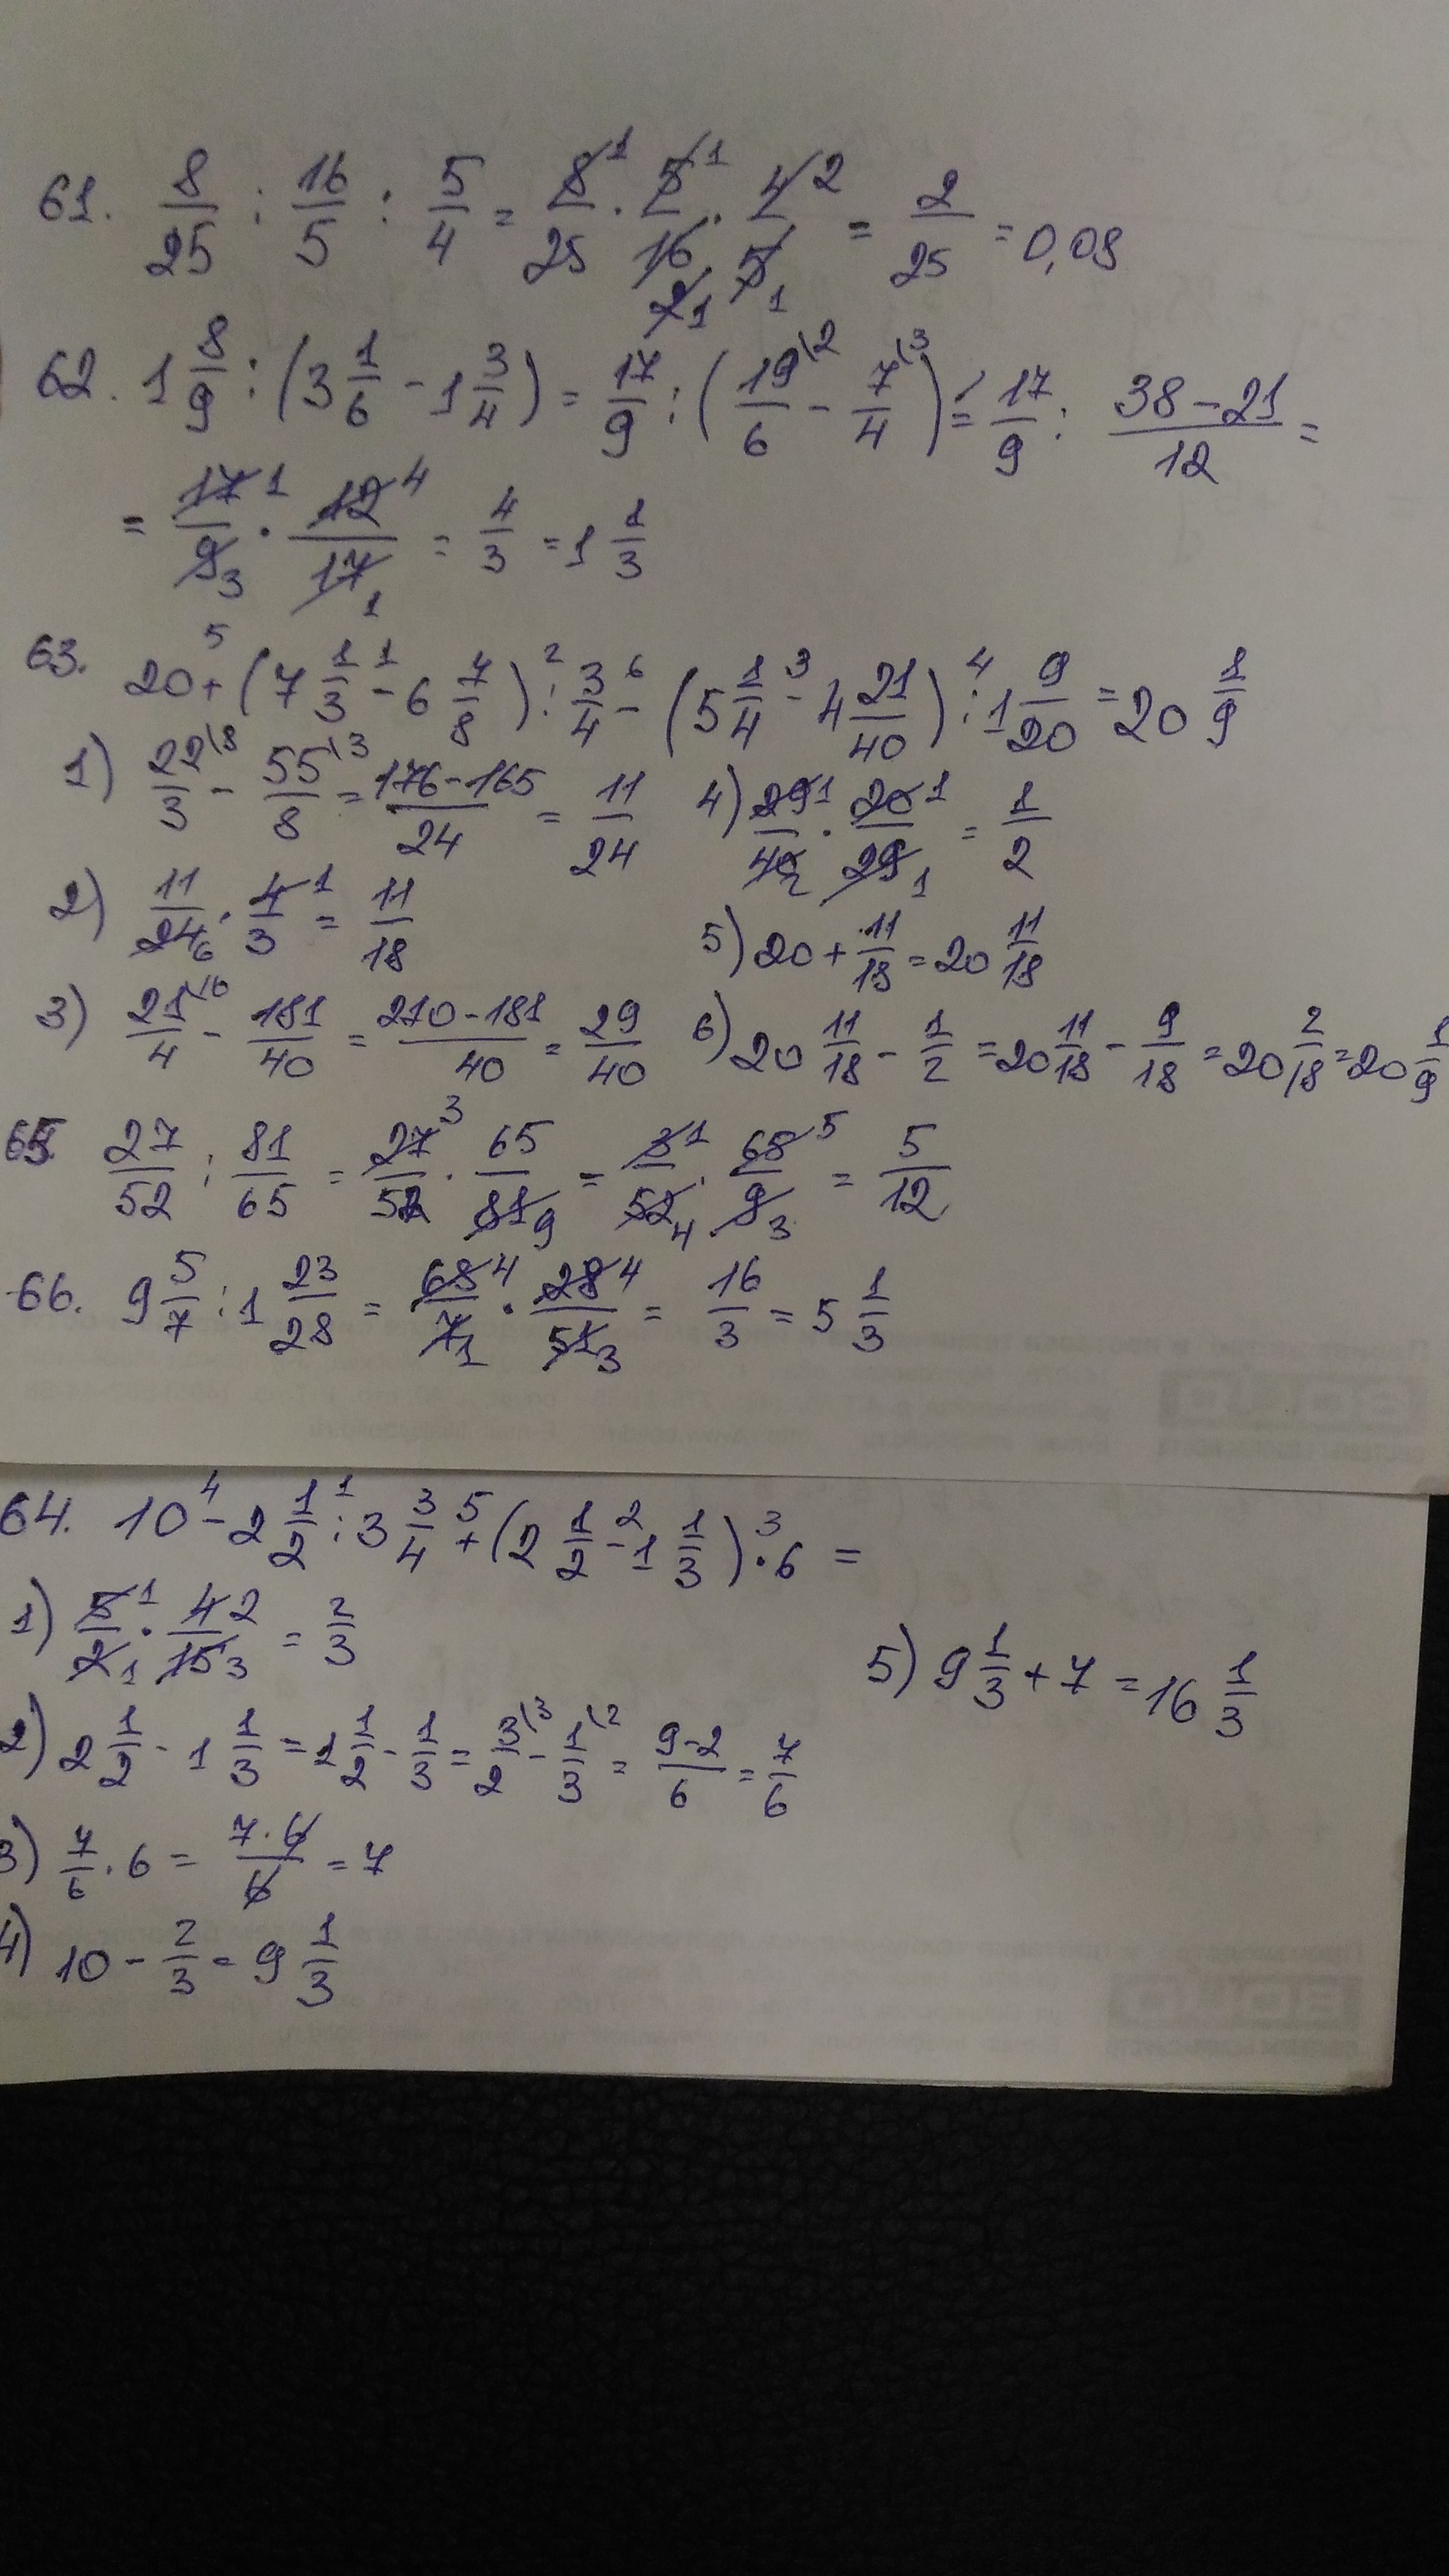 61. 8/25 : 16/5 : 5/4 = 8/25 · 5/16 · 4/5 = 2/25 = 0,08
62. 1 8/9 : (3 1/6 - 1 3/4) = 17/9 : (19/6 - 7/4) = 17/9 : (38-21)/12 =
= 17/9 · 12/17 = 4/3 = 1 1/3
63. 20 + (7 1/3 - 6 7/8) : 3/4 - (5 1/4 - 4 21/40) : 1 9/20 = 20 1/9
1) 22/3 - 55/8 = (176-165)/24 = 11/24
4) 29/40 · 20/29 = 1/2
2) 11/24 · 4/3 = 11/18
5) 20 + 11/18 = 20 11/18
3) 21/4 - 181/40 = (210-181)/40 = 29/40
6) 20 11/18 - 1/2 = 20 11/18 - 9/18 = 20 2/18 = 20 1/9
65. 27/52 : 81/65 = 27/52 · 65/81 = 3/52 · 65/9 = 5/12
66. 9 5/7 : 1 23/28 = 68/7 · 28/51 = 16/3 = 5 1/3
64. 10 - 2 1/2 : 3 3/4 + (2 1/2 - 1 1/3) · 6 =
1) 5/2 · 4/15 = 2/3
5) 9 1/3 + 7 = 16 1/3
2) 2 1/2 - 1 1/3 = 1 1/2 - 1/3 = 3/2 - 1/3 = (9-2)/6 = 7/6
3) 7/6 · 6 = (7·6)/6 = 7
4) 10 - 2/3 = 9 1/3